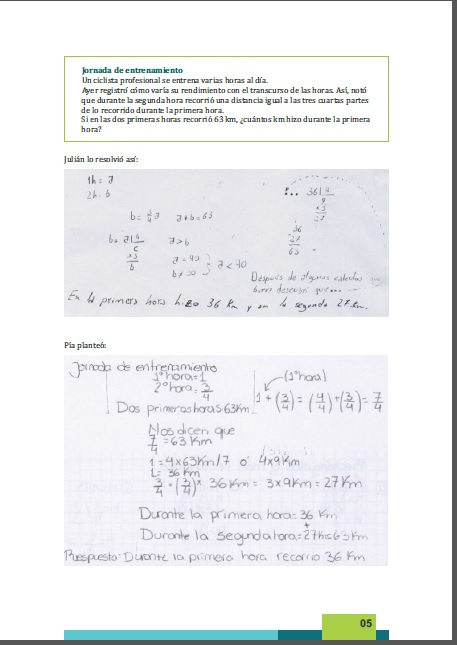 Jornada de entrenamiento
Un ciclista profesional se entrena varias horas al día.
Ayer registró cómo varía su rendimiento con el transcurso de las horas. Así, notó
que durante la segunda hora recorrió una distancia igual a las tres cuartas partes
de lo recorrido durante la primera hora.
Si en las dos primeras horas recorrió 63 km, ¿cuántos km hizo durante la primera
hora?
Julián lo resolvió así:
1h = a
2h = b
b = 3/4 a   a + b = 63
a > b
a = 40
b = 30
a < 40
36
27
63
Después de algunos cálculos
descubrí que...
En la primera hora hizo 36 Km y en la segunda 27 Km.
Pía planteó:
Jornada de entrenamiento
1° hora = 1
2° hora = 3/4
Dos primeras horas 63 Km
(1° hora)
1 + (3/4) = (4/4) + (3/4) = 7/4
Nos dicen que
7/4 = 63 Km
1 = 4x63Km/7 ó 4x9Km
1 = 36 Km
3/4 = (3/4) x 36 Km = 3x9Km = 27 Km
Durante la primera hora = 36 Km
+
Durante la segunda hora = 27 63 Km
Respuesta: Durante la primera hora recorrio 36 Km
05